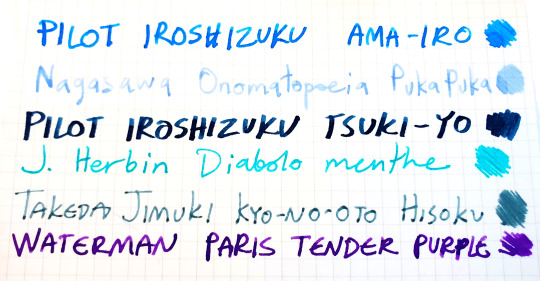 PILOT IROSHIZUKU AMA-IRO
Nagasawa Onomatopoeia PukaPuka
PILOT IROSHIZUKU TSUKI-YO
J. Herbin Diabolo menthe
TAKEDA JIMUKI KYO-NO-OTO HISOKU
WATERMAN PARIS TENDER PURPLE